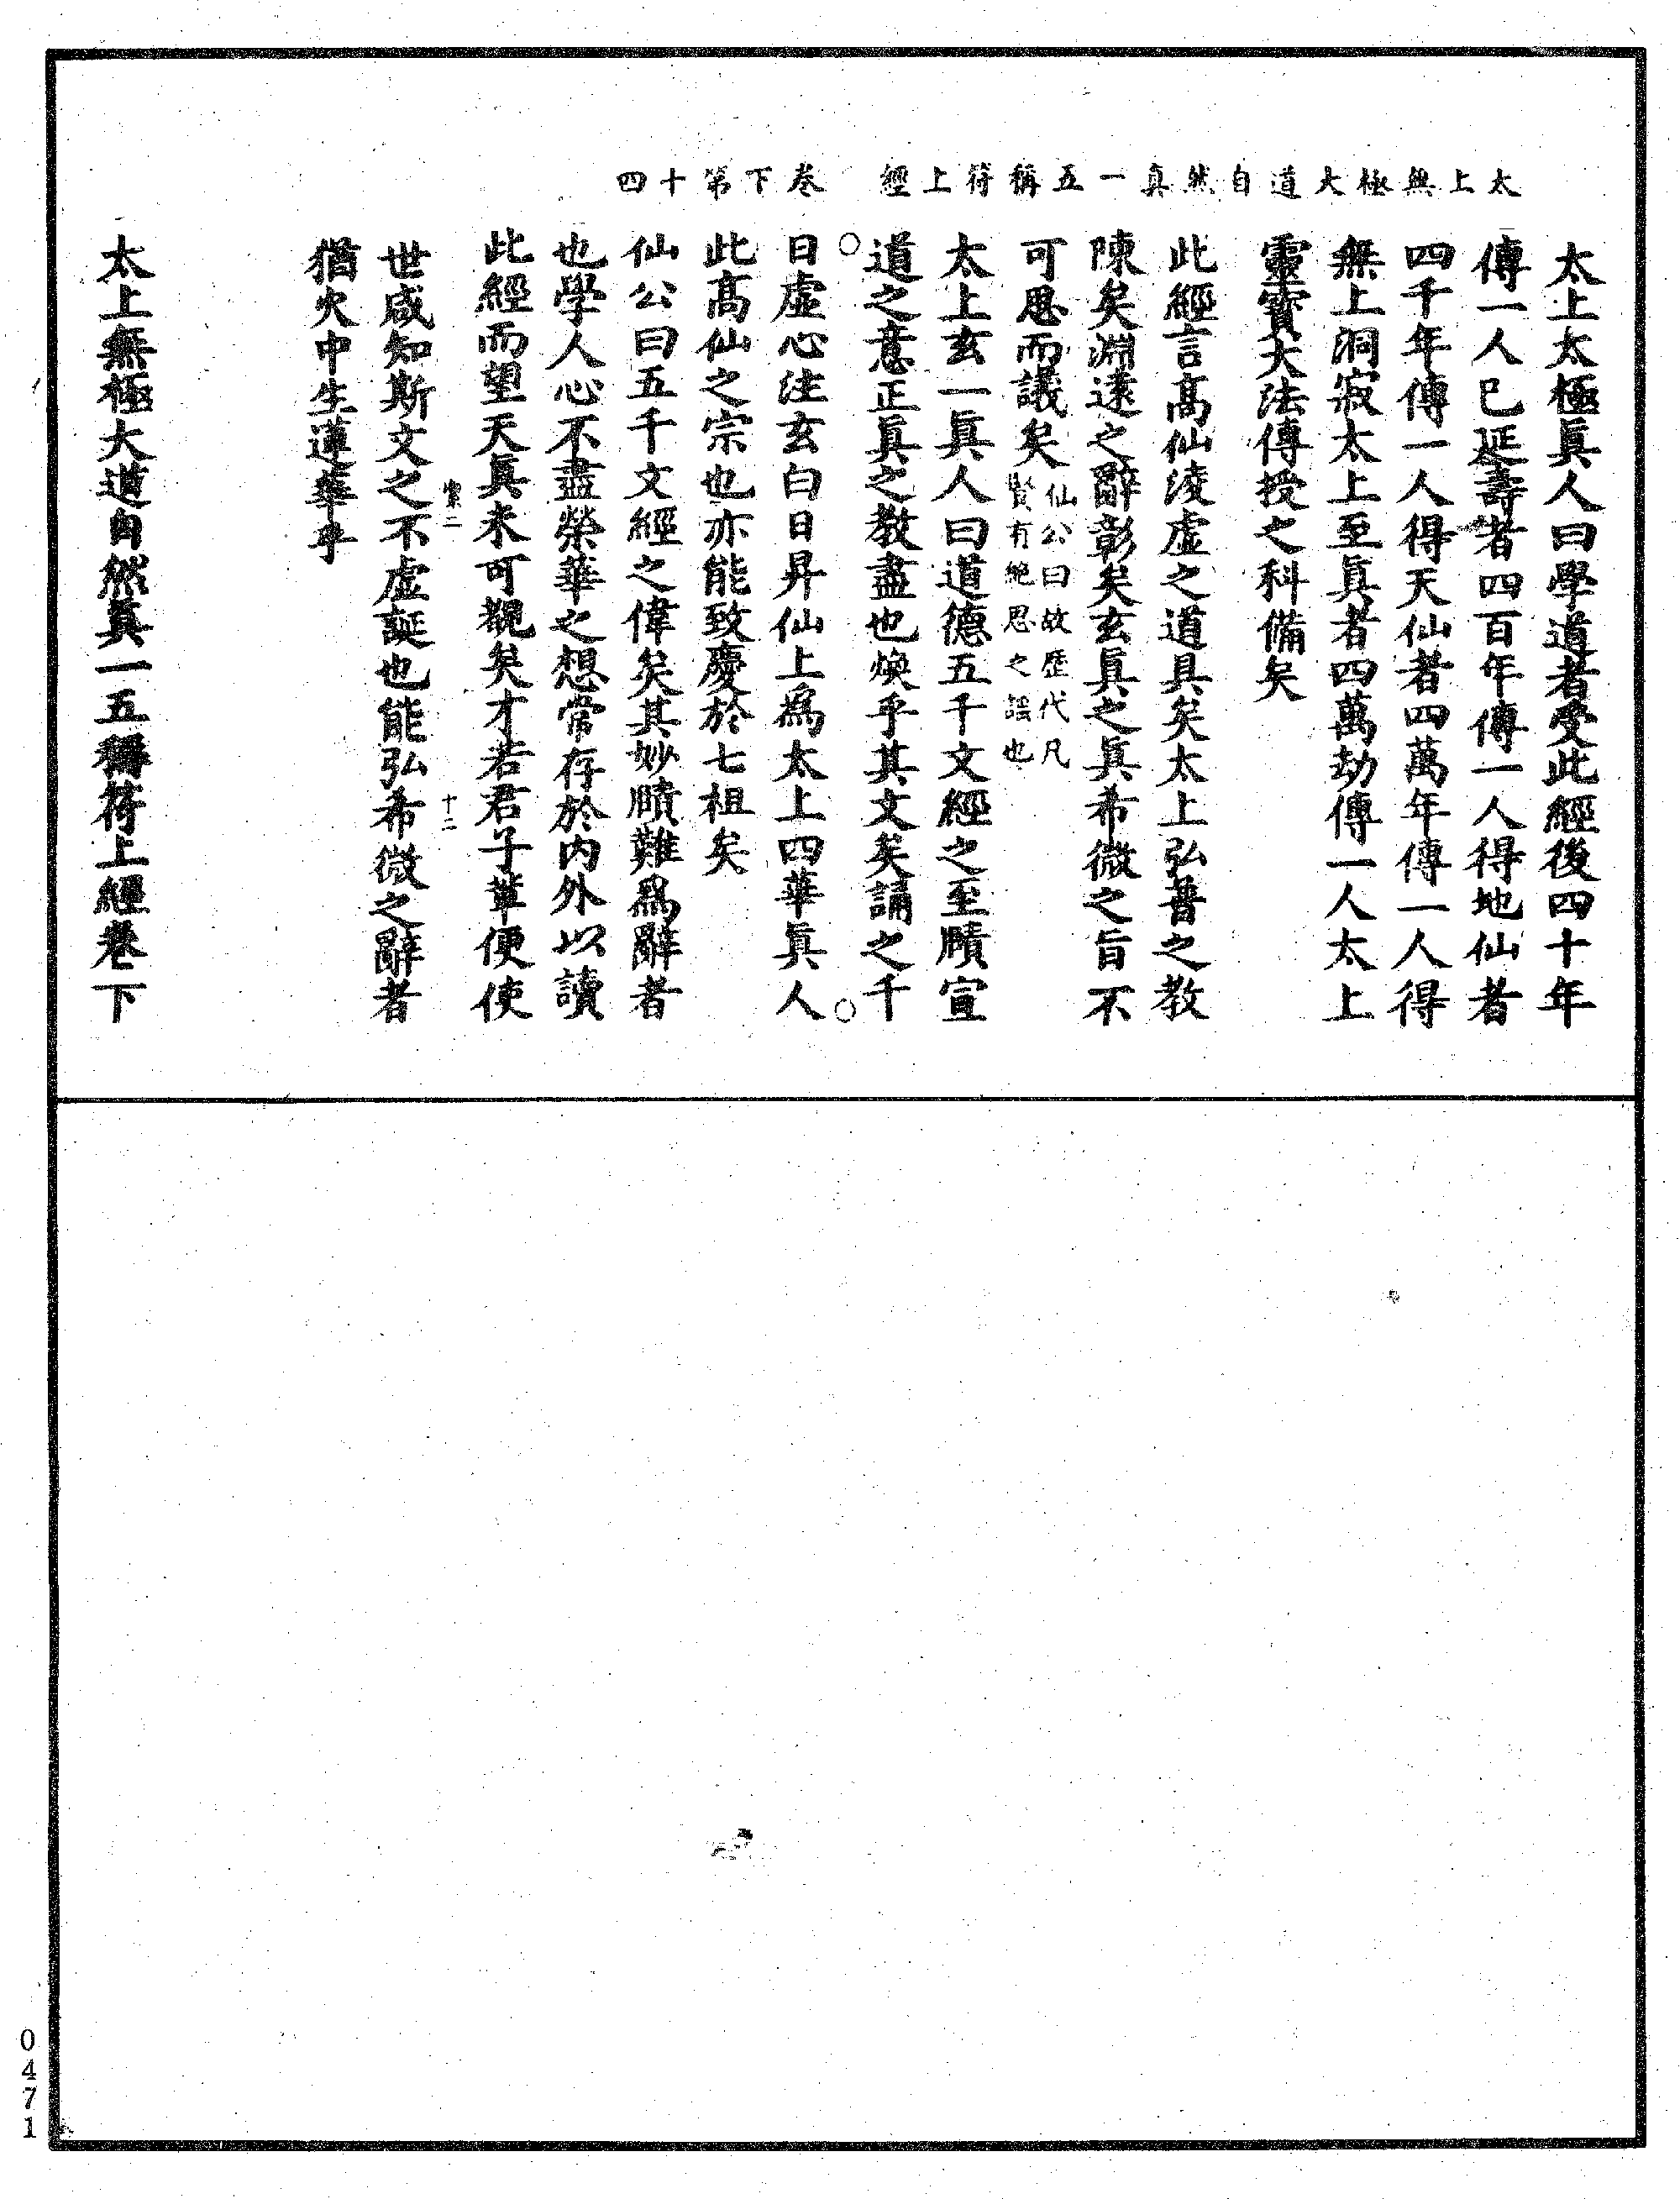 太上無極大道自然真一五稱符上經　卷下第十四
太上太極眞人曰學道者受此經後四十年
傳一人已延壽者四百年傳一人得地仙者
四千年傳一人得天仙者四萬年傳一人得
無上洞寂太上至眞者四萬劫傳一人太上
靈寳大法傳授之科備矣
此經言高仙淩虛之道具矣太上弘普之教
陳矣淵遠之辭彰矣玄眞之眞希微之旨不
可思而議矣仙公曰故歷代凡
賢有絶思之謡也
太上玄一眞人曰道德五千文經之至賾宣
道之意正眞之教盡也煥乎其文矣誦之千
日虛心注玄白日昇仙上爲太上四華眞人
此高仙之宗也亦能致慶於七祖矣
仙公曰五千文經之偉矣其妙賾難爲辭者
也學人心不盡榮華之想常存於内外以讀
此經而望天眞未可覩矣才若君子輩便使
十二
世咸知斯文之不虛誕也能弘希微之辭者
猶火中生蓮華乎
太上無極大道自然眞一五稱符上經卷下
0471